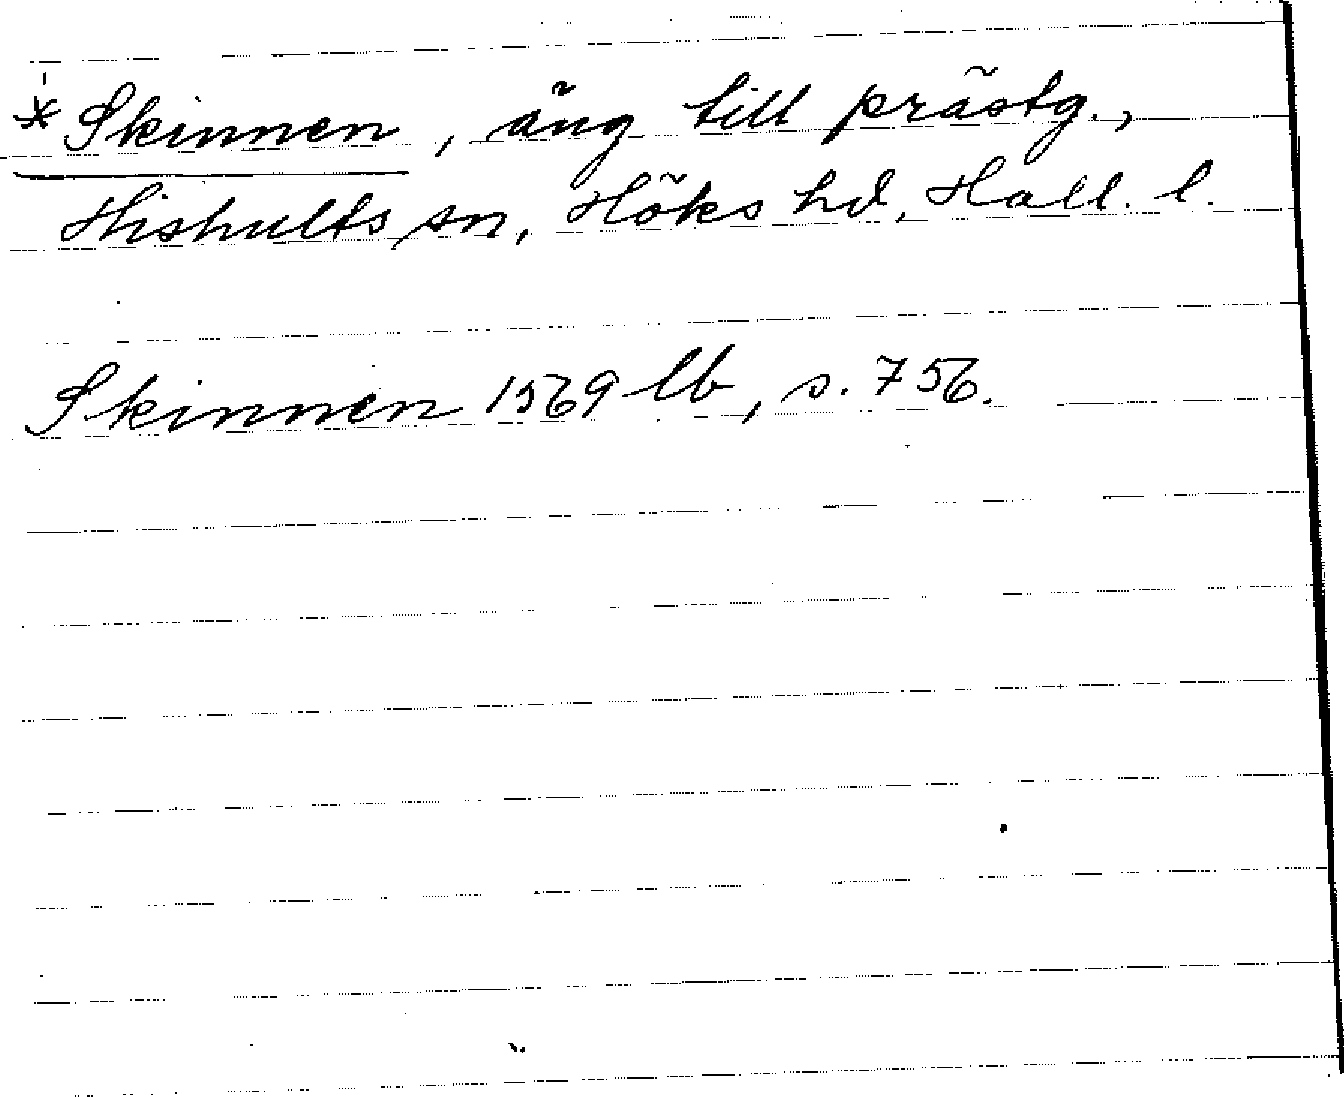 * Skinnen, äng till prästg.,
Hishults sn, Höks hd, Hall. l.
Skinnen 1569 lb, s. 756.